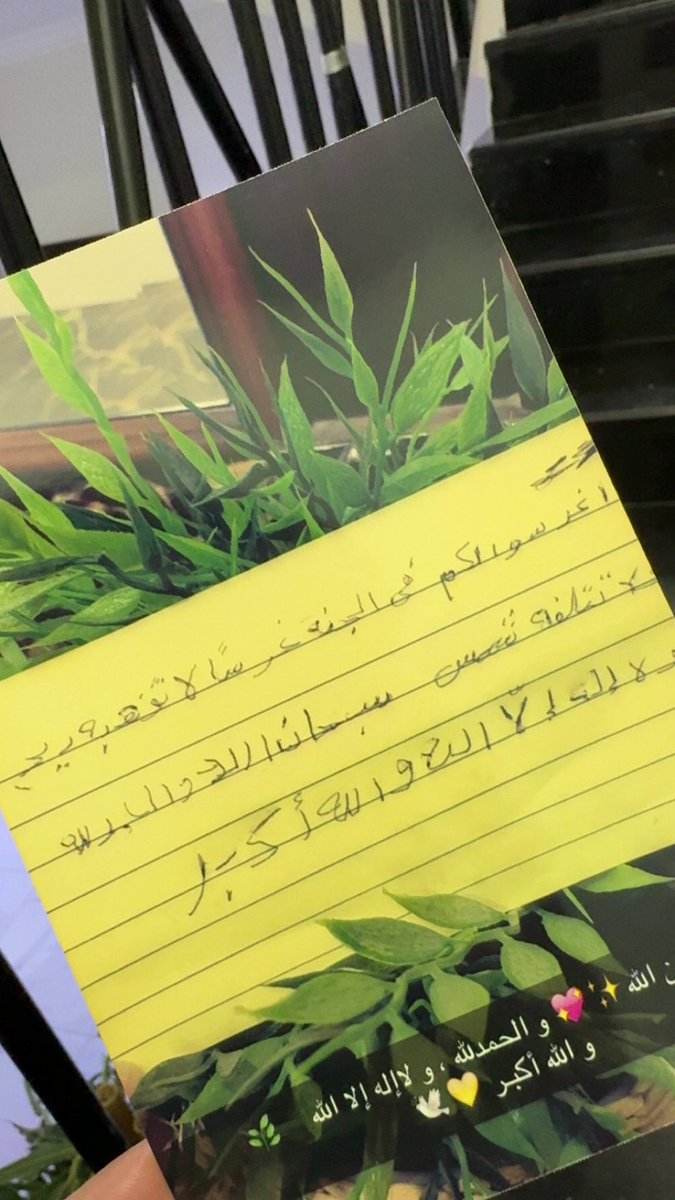 اغرسوا لكم في الجنة غرسًا لا تذهبه ريح
لا تتلفه شمس سبحان الله والحمد لله
ولا إله إلّا الله والله أكبر
ن الله ✨💖 و الحمدلله ، و لاإله إلا الله
و الله أكبر 💛🕊 🌿